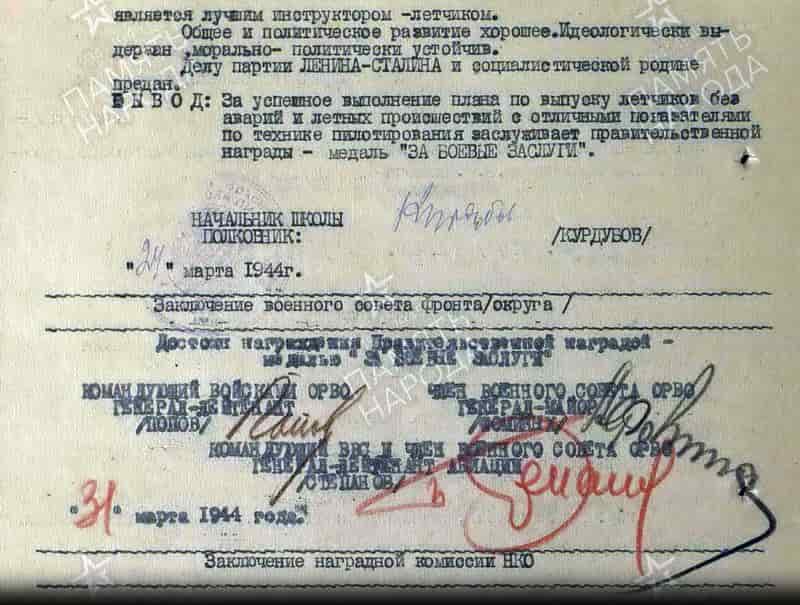 является лучшим инструктором -летчиком.
Общее и политическое развитие хорошее.Идеологически вы-
держан ,морально- политически устойчив.
Делу партии ЛЕНИНА-СТАЛИНА и социалистической родине
предан.
ВЫВОД: За успешное выполнение плана по выпуску летчиков без
аварий и летных происшествий с отличными показателями
по технике пилотирования заслуживает правительственной
награды - медаль "ЗА БОЕВЫЕ ЗАСЛУГИ".
НАЧАЛЬНИК ШКОЛЫ
ПОЛКОВНИК: Курдубов /КУРДУБОВ/
"24" марта 1944г.
Заключение военного совета фронта/округа/
Достоин награждения Правительственной наградой -
медалью "ЗА БОЕВЫЕ ЗАСЛУГИ"
КОМАНДУЮЩИЙ ВОЙСКАМИ ОРВО ЧЛЕН ВОЕННОГО СОВЕТА ОРВО
ГЕНЕРАЛ-ЛЕЙТЕНАНТ ГЕНЕРАЛ-МАЙОР
/ПОПОВ/ Попов
КОМАНДУЮЩИЙ ВВС И ЧЛЕН ВОЕННОГО СОВЕТА ОРВО
ГЕНЕРАЛ-ЛЕЙТЕНАНТ АВИАЦИИ
/СТЕПАНОВ/
"31" марта 1944 года.
Заключение наградной комиссии НКО
ПАМЯТЬ НАРОДА
ПАМЯТЬ НАРОДА
ПАМЯТЬ НАРОДА